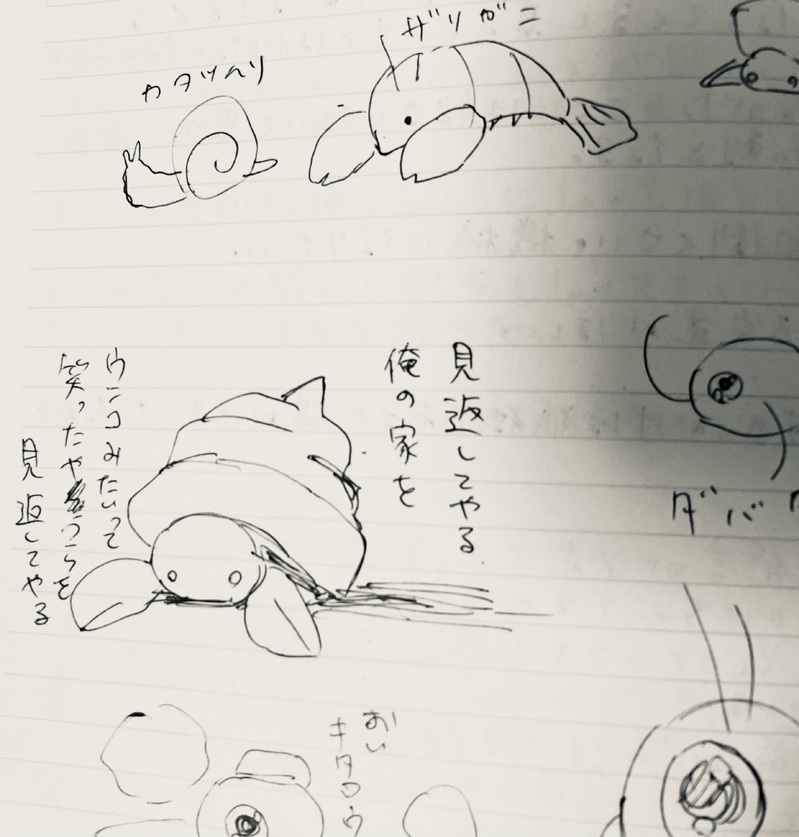 カタツムリ
ザリガニ
見返してやる
俺の家を
ウンコみたいって
笑ったやつらを
見返してやる
ダバ
おい
キタロウ